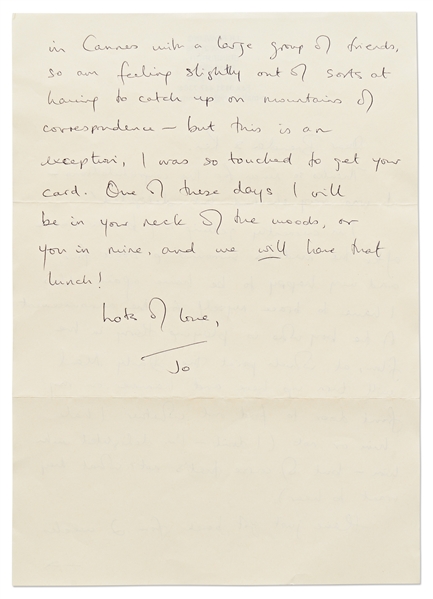 in Cannes with a large group of friends,
so am feeling slightly out of sorts at
having to catch up on mountains of
correspondence – but this is an
exception, I was so touched to get your
card. One of these days I will
be in your neck of the woods, or
you in mine, and we will have that
lunch!
Lots of love,
Jo